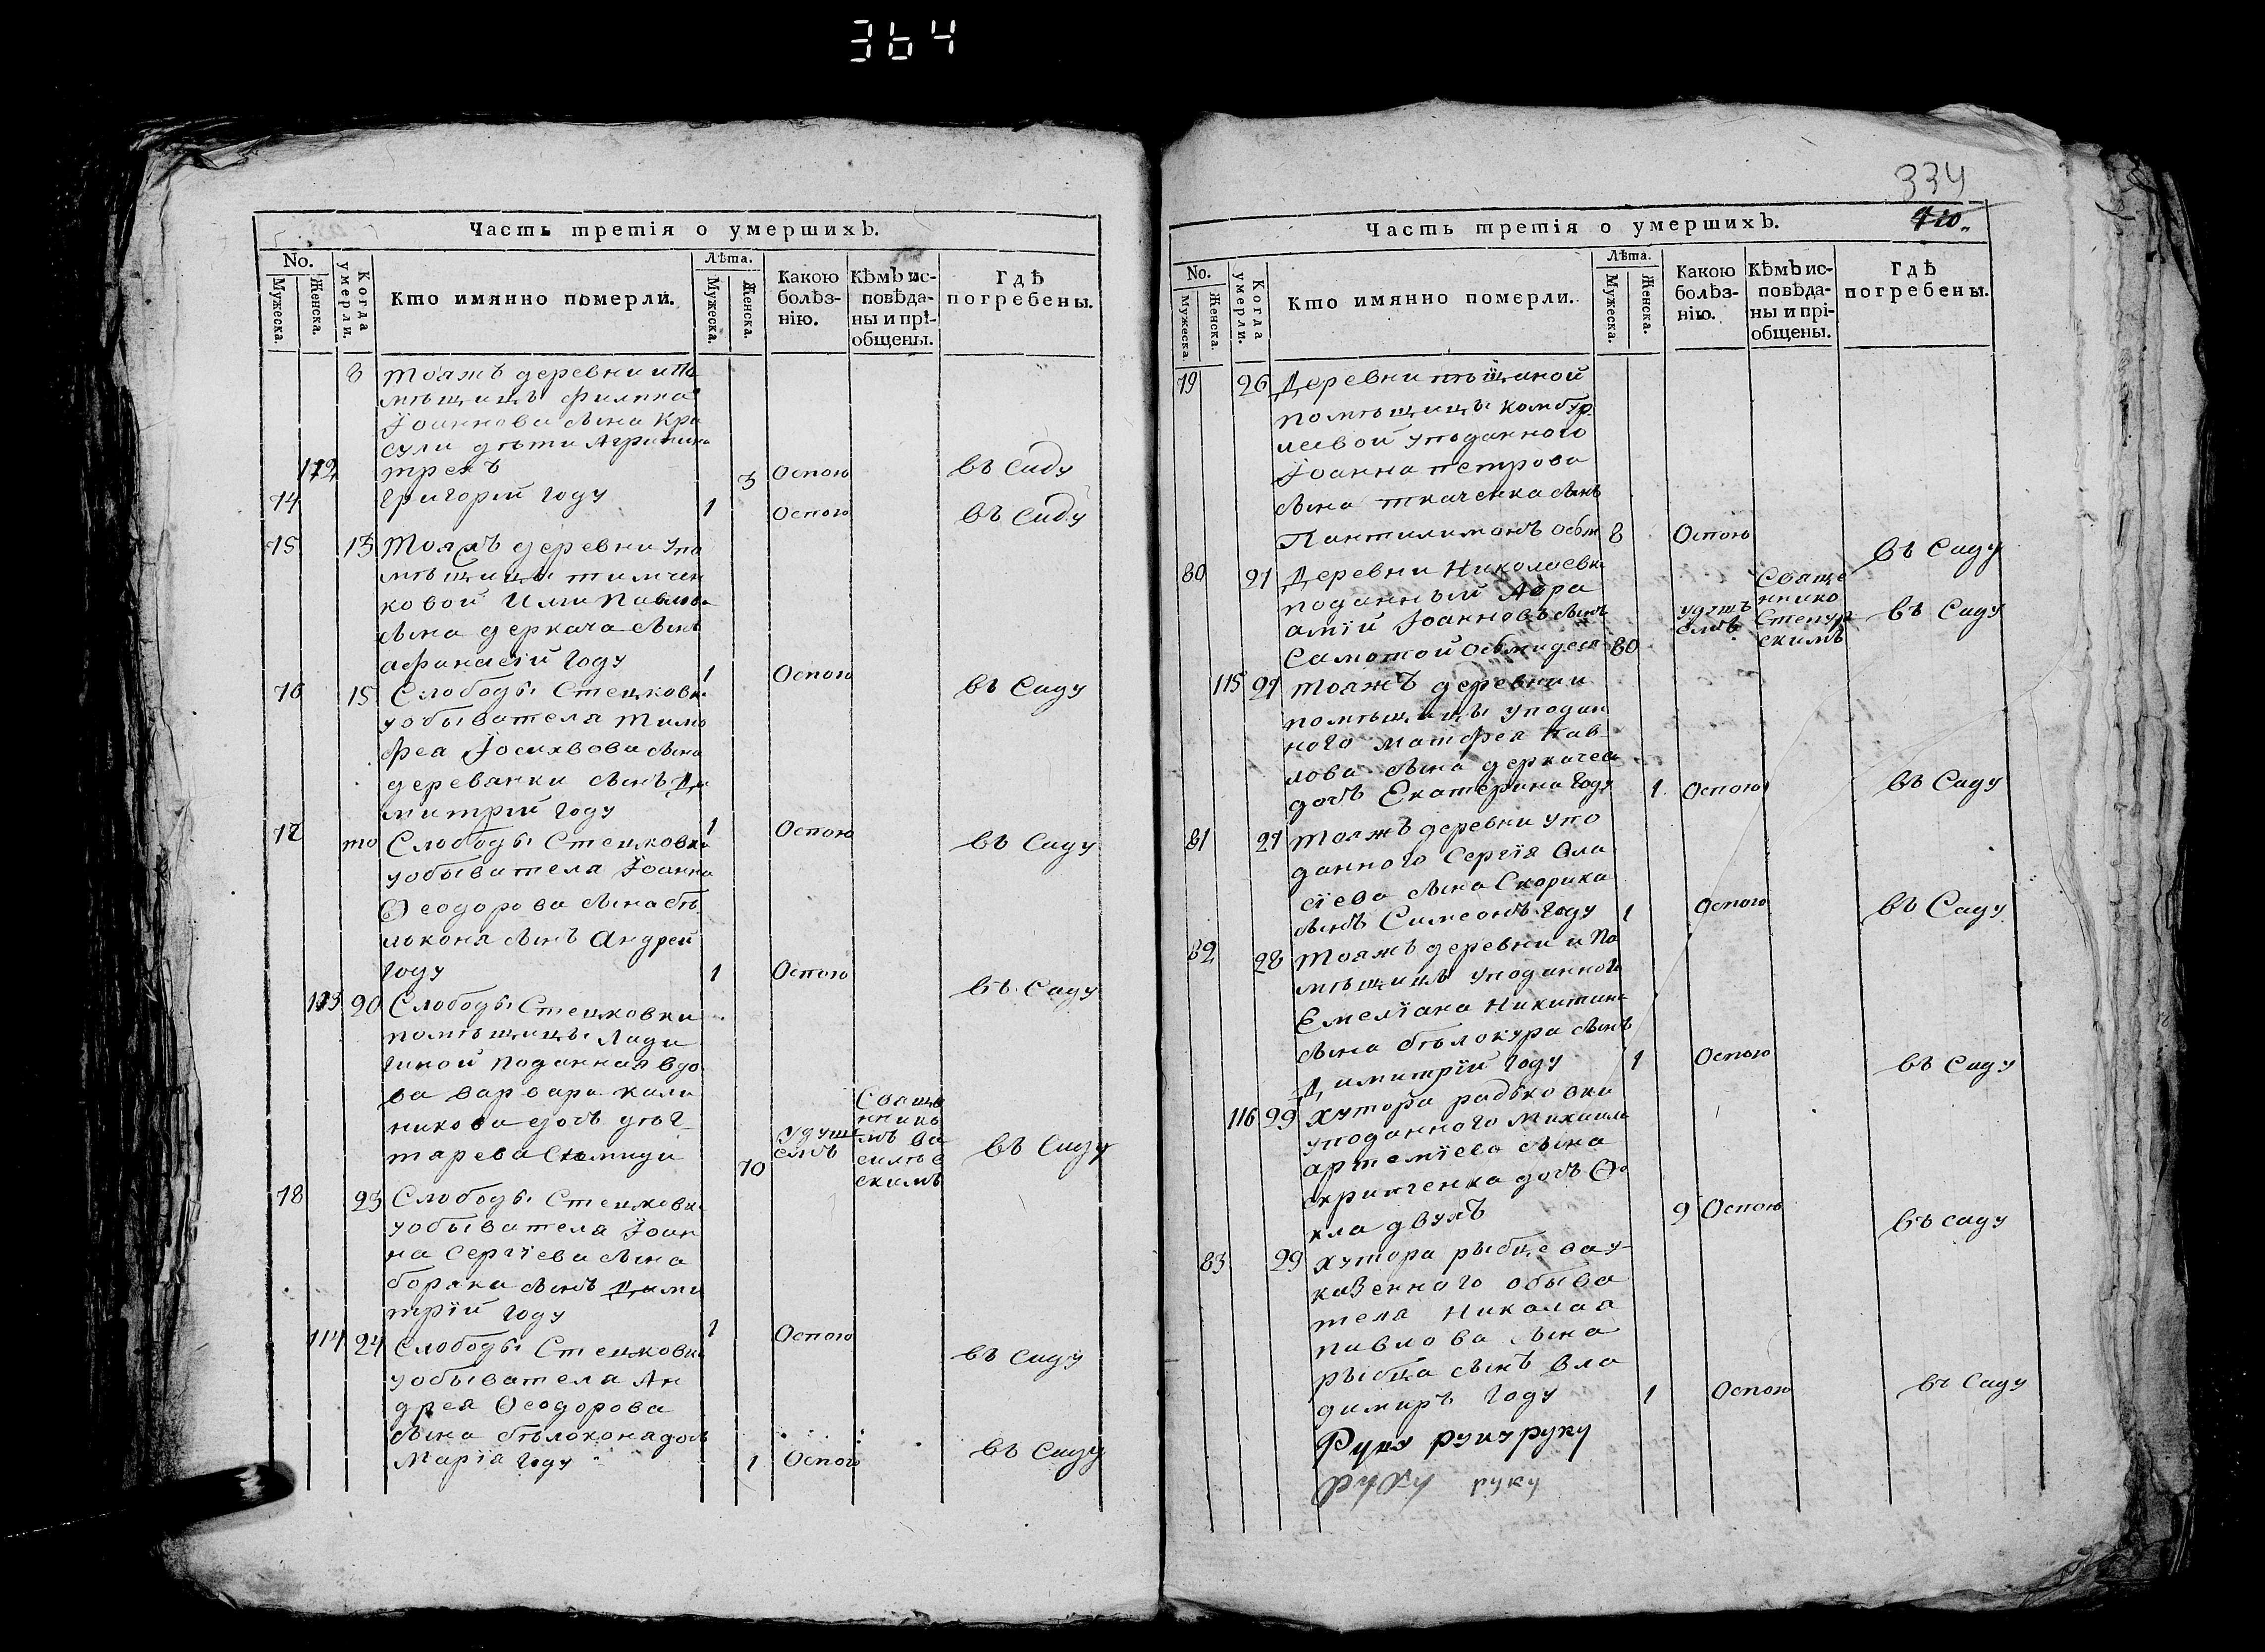 364
Часть третія о умершихъ.
No.
Мужеска.
Женска.
Когда умерли.
Кто имянно померли.
Лѣта.
Мужеска.
Женска.
Какою болѣз-
нію.
Кѣмъ ис-
повѣда-
ны и прі-
общены.
Гдѣ
погребены.
8 тояжъ деревни и по
мѣщицы филипа
Іоаннова сына Кра
сули дѣти Агрипина
112 трехъ 3 Оспою въ саду
74 григорій году 1 Оспою въ саду
75 13 Тояжъ деревни упо
мѣщицы тимчен
ковой Или Павлова
сына деркача сынъ
афанасій году 1 Оспою въ саду
76 15 Слободы Стецковки
уобывателя Тимо
фея Іосихвова сына
деревянки сынъ Ди
митрій году 1 Оспою въ саду
77 то Слободы Стецковки
уобывателя Іоанна
Ѳеодорова сына бѣ
льконя сынъ Андрей
году 1 Оспою въ саду
113 20 Слободы Стецковки
помѣщицы Лади
гиной поданная вдо
ва варвара кали
никова дочь дѣг
тарева семиде 70 удуш
емъ въ саду
78 23 Слободы Стецковки
уобывателя Іоан
на Сергіева сына
боряка сынъ Дими
трій году 1 Оспою въ саду
114 24 Слободы Стецковки
уобывателя Ан
дрея Ѳеодорова
сына бѣлоконя дочь
Марія году 1 Оспою въ саду
334
710.
Часть третія о умершихъ.
No.
Мужеска.
Женска.
Когда умерли.
Кто имянно померли.
Лѣта.
Мужеска.
Женска.
Какою
болѣз-
нію.
Кѣмъ ис-
повѣда-
ны и прі-
общены.
Гдѣ
погребены.
79 26 Деревни
помѣщицы комбур
леевой уподанного
Іоанна петрова
сына ткаченка сынъ
Пантилимонъ осьм 8 Оспою въ саду
80 27 Деревни Николаевки
поданный Авра
амій Іоанновъ сынъ
Самотой Осьмидеся 80 удуш
емъ Свяще
ннико
скимъ въ саду
115 27 тояжъ деревни и
помѣщицы уподан
ного Матфея Пав
лова сына деркачеа
дочь Екатерина году 1 Оспою въ саду
81 27 тояжъ деревни упо
данного Сергія Вла
сіева сына Скорика
сынъ Симеонъ году 1 Оспою въ саду
82 28 тояжъ деревни и по
мѣщицы уподанного
Емеліана Никитина
сына бѣлокура сынъ
Димитрій году 1 Оспою въ саду
116 29 хутора радьковки
уподанного Михаила
артеміева сына
скрипченка дочь Ѳе
кла двухъ 2 Оспою въ саду
83 29 хутора рыбцева у
казенного обыва
теля Николая
павлова сына
рыбца сынъ вла
димиръ году 1 Оспою въ саду
руку
руку